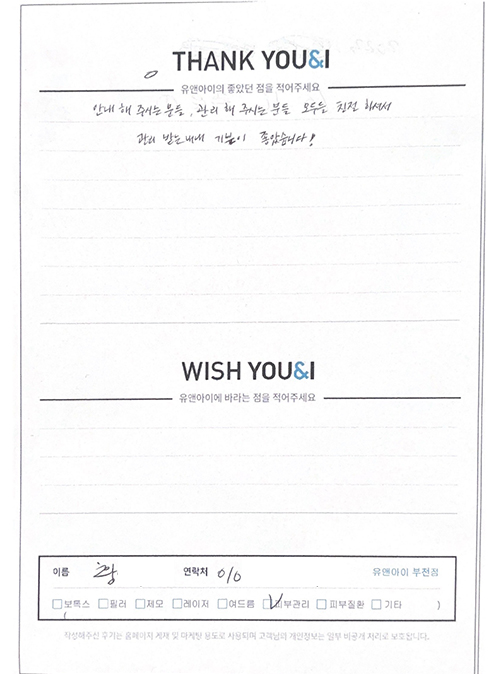 THANK YOU&I
유앤아이의 좋았던 점을 적어주세요
안내 해 주시는 분들, 관리 해 주시는 분들 모두들 친절 하셔서
관리 받는 내내 기분이 좋았습니다!
WISH YOU&I
유앤아이에 바라는 점을 적어주세요
이름 황 연락처 010 유앤아이 부전점
보톡스 필러 제모 레이저 여드름 피부관리 피부질환 기타 )
작성해주신 후기는 홈페이지 게재 및 마케팅 용도로 사용되며 고객님의 개인정보는 일부 비공개 처리로 보호됩니다.